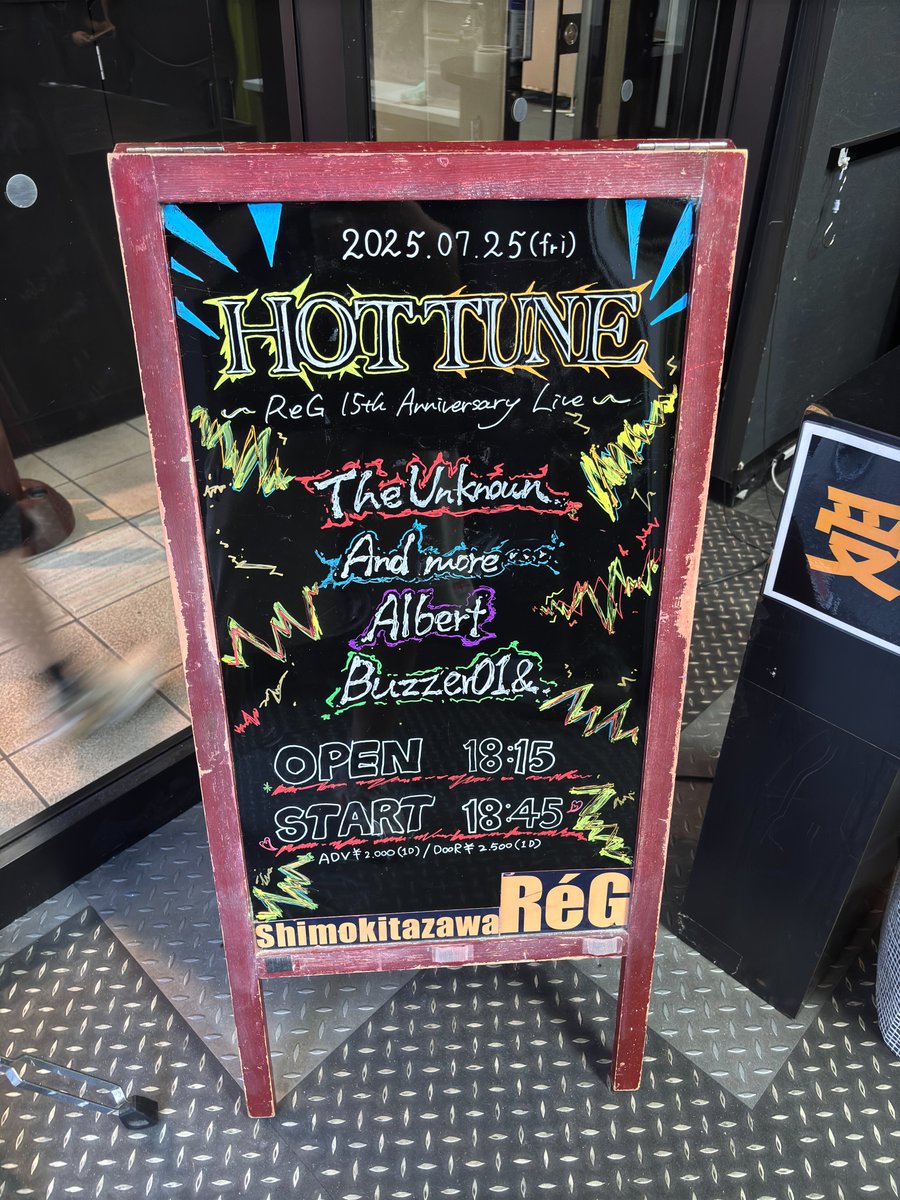 2025.07.25(fri)
HOT TUNE
~ ReG 15th Anniversary Live ~
The Unknoun
And more ....
Albert
Buzzer01&.
OPEN 18:15
START 18:45
ADV¥2.000(1D)/DooR¥2.500(1D)
Shimokitazawa RéG
受